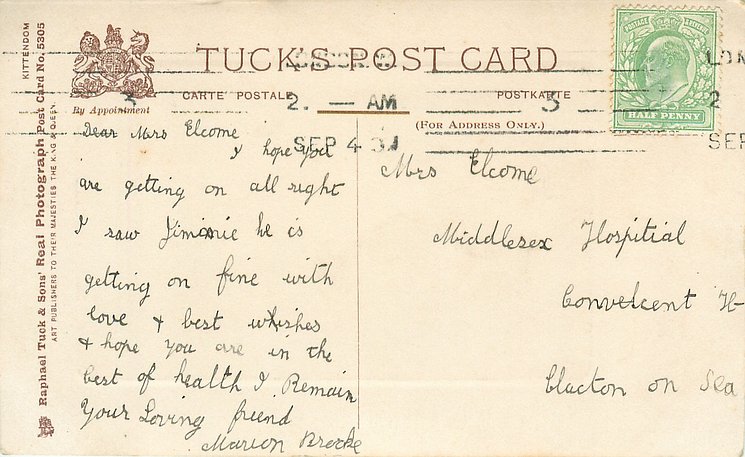 TUCK'S POST CARD
CARTE POSTALE
POSTKARTE
By Appointment
(FOR ADDRESS ONLY.)
KITTENDOM
Raphael Tuck & Sons' Real Photograph Post Card No. 5305
ART PUBLISHERS TO THEIR MAJESTIES THE KING & QUEEN.
POSTAGE & REVENUE
HALF PENNY
2. — AM
SEP 4
3
LON
2
SEP
Dear Mrs Elcome
I hope you
are getting on all right
I saw Jimmie he is
getting on fine with
love & best whishes
& hope you are in the
best of health I Remain
Your Loving friend
Marion Brooke
Mrs Elcome
Middlesex Hospitial
Convelcent H-
Clacton on Sea